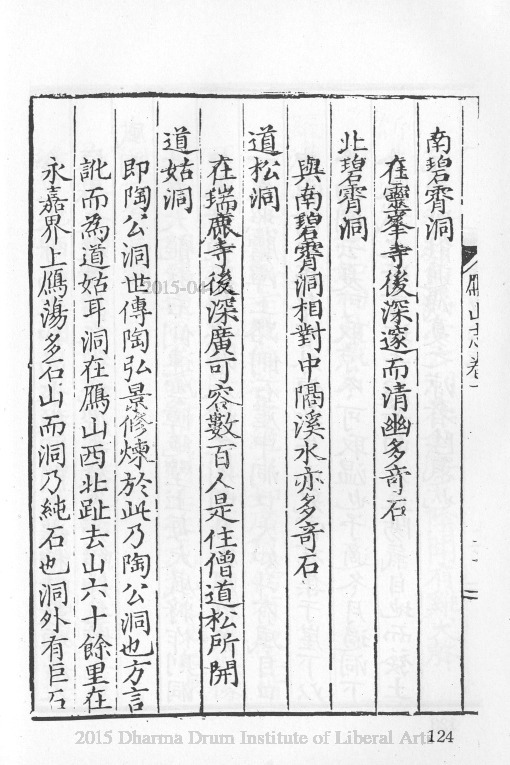 鴈山志卷一
南碧霄洞
在靈峯寺後深邃而清幽多奇石
北碧霄洞
與南碧霄洞相對中隔溪水亦多奇石
道松洞
在瑞鹿寺後深廣可容數百人是住僧道松所開
道姑洞
即陶公洞世傳陶弘景修煉於此乃陶公洞也方言
訛而為道姑耳洞在鴈山西北趾去山六十餘里在
永嘉界上鴈蕩多石山而洞乃純石也洞外有巨石
2015 Dharma Drum Institute of Liberal Arts
124